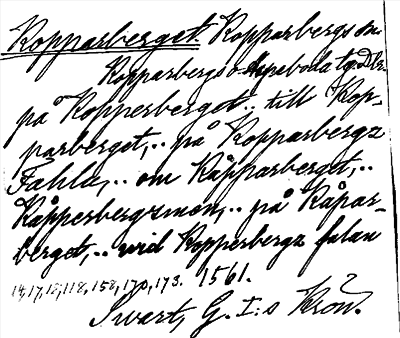 Kopparberget. Kopparbergs sn.
Kopparbergs o Aspeboda tg. Dlr.
på Kopperberget.; till Kop-
parberget,.. på Kopparbergz
Fahla,.. om Kåpparberget,..
Kåpperbergzmon,.. på Kåpar-
berget,.. wid Kopperbergz falan
14,17,18,118,158,170,173. 1561.
Swart, G. I:s Krön.